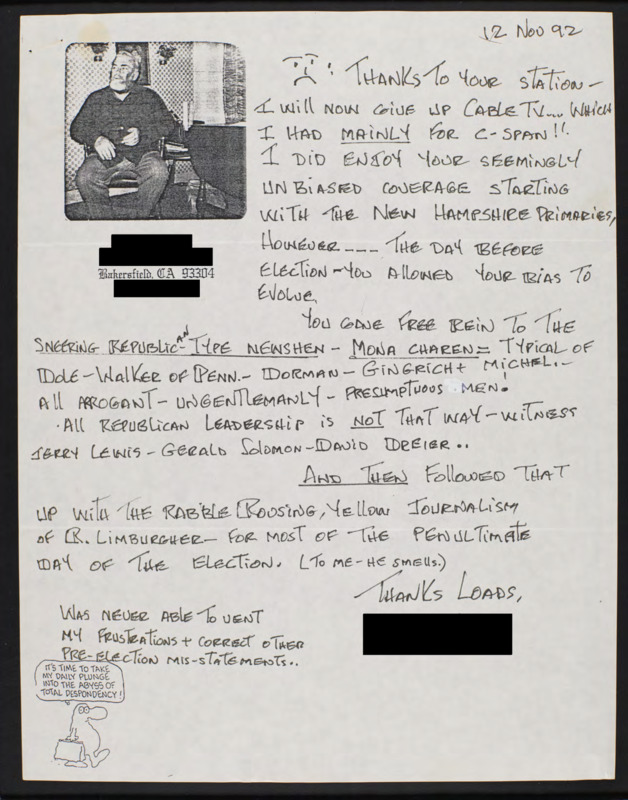 12 Nov 92
: THANKS TO YOUR STATION -
I WILL NOW GIVE UP CABLE TV.... WHICH
I HAD MAINLY FOR C-SPAN!!
I DID ENJOY YOUR SEEMINGLY
UNBIASED COVERAGE STARTING
WITH THE NEW HAMPSHIRE PRIMARIES,
HOWEVER ---- THE DAY BEFORE
ELECTION - YOU ALLOWED YOUR BIAS TO
EVOLVE.
Bakersfield, CA 93304
YOU GAVE FREE REIN TO THE
SNEERING REPUBLICAN-TYPE NEWSHEN - MONA CHAREN = TYPICAL OF
DOLE - WALKER OF PENN. - DORMAN - GINGRICH + MICHEL. -
ALL ARROGANT - UNGENTLEMANLY - PRESUMPTUOUS MEN!
. ALL REPUBLICAN LEADERSHIP IS NOT THAT WAY - WITNESS
JERRY LEWIS - GERALD SOLOMON - DAVID DREIER..
AND THEN FOLLOWED THAT
UP WITH THE RABBLE ROUSING, YELLOW JOURNALISM
OF R. LIMBURGHER - FOR MOST OF THE PENULTIMATE
DAY OF THE ELECTION. (TO ME - HE SMELLS.)
THANKS LOADS,
WAS NEVER ABLE TO VENT
MY FRUSTRATIONS + CORRECT OTHER
PRE-ELECTION MIS-STATEMENTS..
IT'S TIME TO TAKE
MY DAILY PLUNGE
INTO THE ABYSS OF
TOTAL DESPONDENCY!